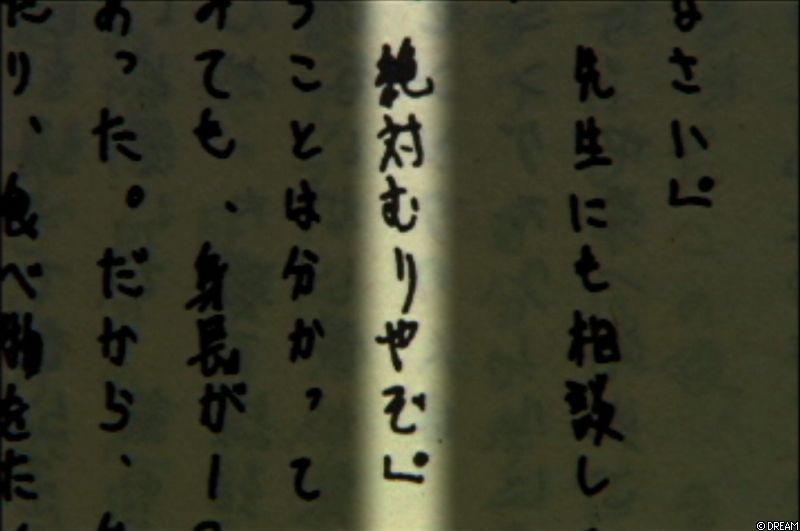 なさい」。
先生にも相談し
絶対むりやぞ」。
うことは分かって
みても、身長が1
あった。だから、
たり、食べ物をた
© DREAM